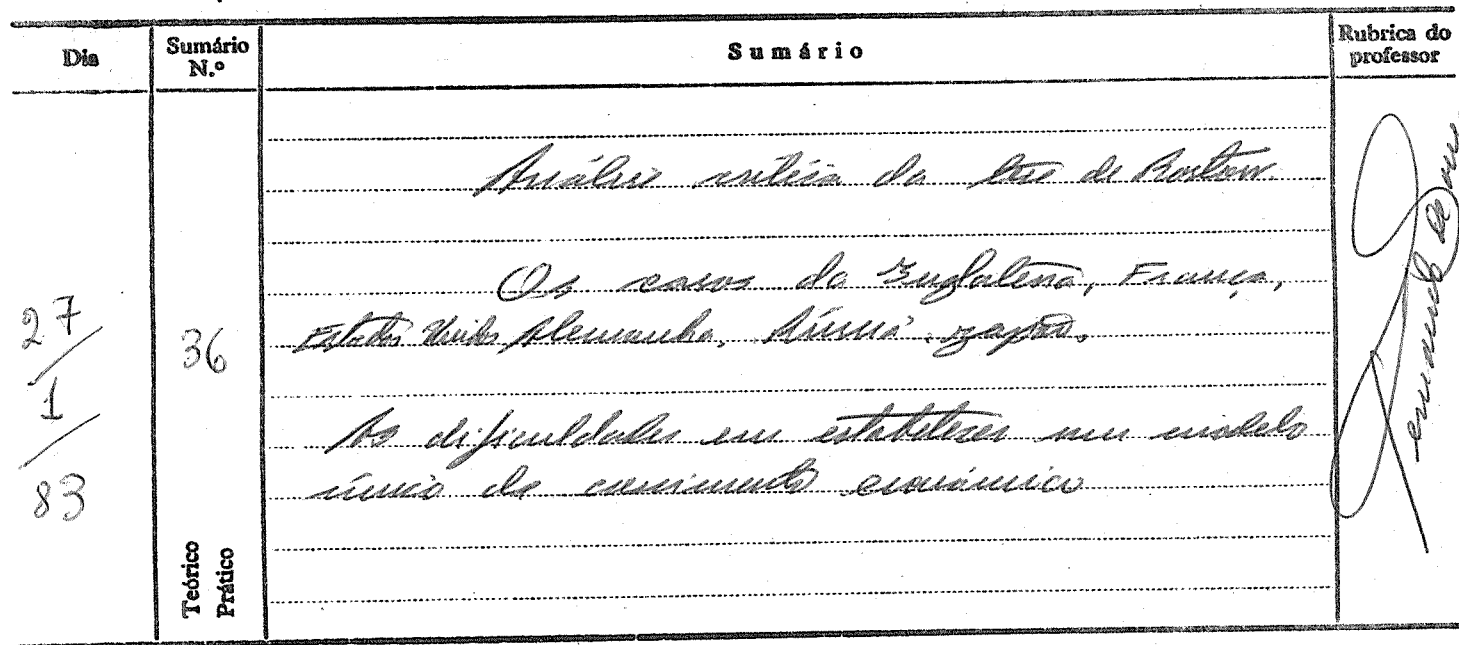 Dia
Sumário N.º
Sumário
Rubrica do professor
27/1/83
36
Teórico
Prático
Análise crítica da tese de Rostow.
Os casos da Inglaterra, França,
Estados Unidos Alemanha, Rússia Japão.
As dificuldades em estabelecer um modelo
único de crescimento económico